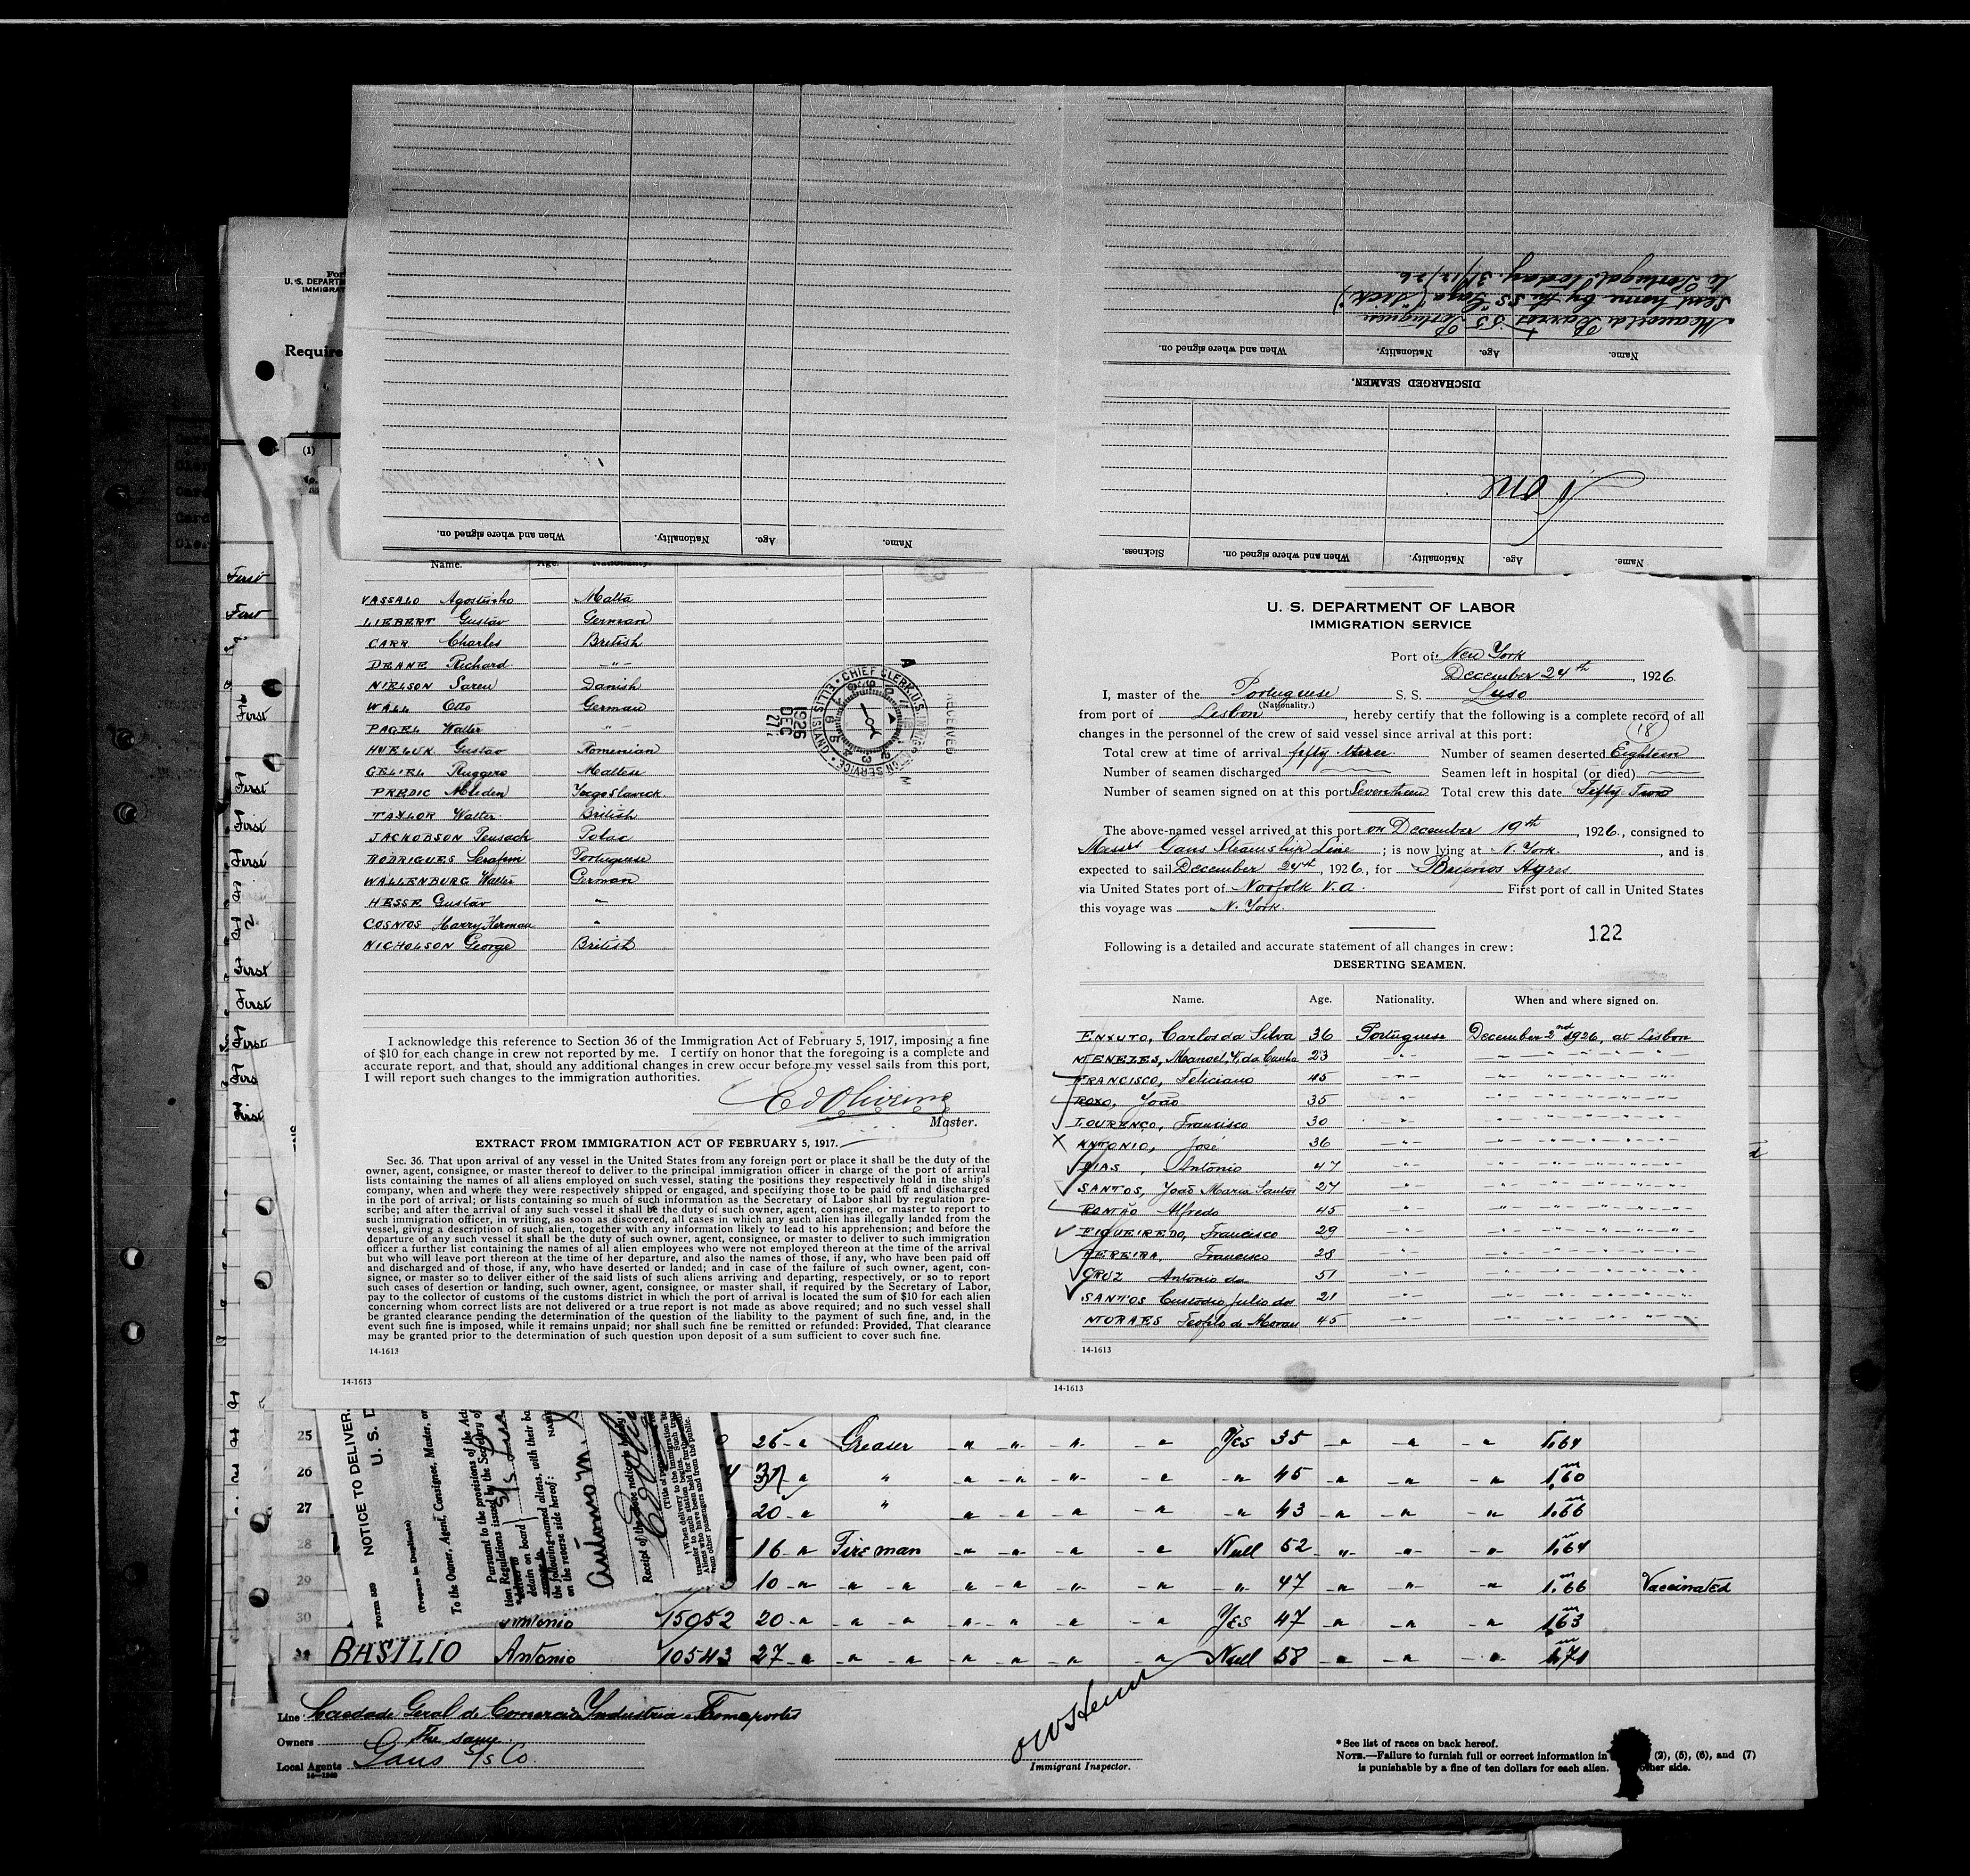 Manoel de Barros 55 Portuguese
Sent home by the SS "Gaza" (sick)
to Portugal today, 31/12/26
Name. Age. Nationality. When and where signed on.
DISCHARGED SEAMEN.
None
Name. Age. Nationality. When and where signed on. Sickness.
Name. Age. Nationality. When and where signed on.
U. S. DEPART
IMMIGRAT
Require
(1)
Name. Age. Nationality.
VASSALO Agostinho Malta
LIEBERT Gustav German
CARR Charles British
DEANE Richard -"-
NIELSON Saren Danish
WALL Otto German
PAGEL Walter "-
HUELUK Gustav Romenian
GELIEL Ruggero Maltese
PREDIC Mleden Yugoslavick.
TAYLOR Walter British
JACKOBSON Pensach Polac
RODRIGUES Serafim Portuguese
WALLENBURG Walter German
HESSE Gustav "
COSNIOS Harry Herman "
NICHOLSON George British
RECEIVED
CHIEF CLERK, U.S. IMMIGRATION SERVICE
ELLIS ISLAND
1926 DEC 27
I acknowledge this reference to Section 36 of the Immigration Act of February 5, 1917, imposing a fine
of $10 for each change in crew not reported by me. I certify on honor that the foregoing is a complete and
accurate report, and that, should any additional changes in crew occur before my vessel sails from this port,
I will report such changes to the immigration authorities.
Master.
EXTRACT FROM IMMIGRATION ACT OF FEBRUARY 5, 1917.
Sec. 36. That upon arrival of any vessel in the United States from any foreign port or place it shall be the duty of the
owner, agent, consignee, or master thereof to deliver to the principal immigration officer in charge of the port of arrival
lists containing the names of all aliens employed on such vessel, stating the positions they respectively hold in the ship's
company, when and where they were respectively shipped or engaged, and specifying those to be paid off and discharged
in the port of arrival; or lists containing so much of such information as the Secretary of Labor shall by regulation pre-
scribe; and after the arrival of any such vessel it shall be the duty of such owner, agent, consignee, or master to report to
such immigration officer, in writing, as soon as discovered, all cases in which any such alien has illegally landed from the
vessel, giving a description of such alien, together with any information likely to lead to his apprehension; and before the
departure of any such vessel it shall be the duty of such owner, agent, consignee, or master to deliver to such immigration
officer a further list containing the names of all alien employees who were not employed thereon at the time of the arrival
but who will leave port thereon at the time of her departure, and also the names of those, if any, who have been paid off
and discharged and of those, if any, who have deserted or landed; and in case of the failure of such owner, agent, con-
signee, or master so to deliver either of the said lists of such aliens arriving and departing, respectively, or so to report
such cases of desertion or landing, such owner, agent, consignee, or master shall, if required by the Secretary of Labor,
pay to the collector of customs of the customs district in which the port of arrival is located the sum of $10 for each alien
concerning whom correct lists are not delivered or a true report is not made as above required; and no such vessel shall
be granted clearance pending the determination of the question of the liability to the payment of such fine, and, in the
event such fine is imposed, while it remains unpaid; nor shall such fine be remitted or refunded: Provided, That clearance
may be granted prior to the determination of such question upon deposit of a sum sufficient to cover such fine.
14-1613
14-1613
U. S. DEPARTMENT OF LABOR
IMMIGRATION SERVICE
Port of New York
December 24th, 1926.
I, master of the Portuguese S. S. Luso
(Nationality.)
from port of Lisbon, hereby certify that the following is a complete record of all
changes in the personnel of the crew of said vessel since arrival at this port: (18)
Total crew at time of arrival fifty three Number of seamen deserted Eighteen
Number of seamen discharged Seamen left in hospital (or died)
Number of seamen signed on at this port Seventeen Total crew this date Fifty Two
The above-named vessel arrived at this port on December 19th, 1926., consigned to
Messrs Gans Steamship Line; is now lying at N. York., and is
expected to sail December 24th, 1926, for Buenos Ayres.
via United States port of Norfolk V.a. First port of call in United States
this voyage was N. York.
122
Following is a detailed and accurate statement of all changes in crew:
DESERTING SEAMEN.
Name. Age. Nationality. When and where signed on.
ENXUTO, Carlos da Silva 36 Portuguese December 2nd 1926, at Lisbon
MENEZES, Manoel, V. da Cunha 23 -"-
FRANCISCO, Feliciano 45 -"-
ROXO, João 35 -"-
LOURENÇO, Francisco 30 -"-
X ANTONIO, José 36 -"-
DIAS, Antonio 47 -"-
SANTOS, João Maria Santos 27 -"-
ROMÃO Alfredo 45 -"-
FIGUEIREDO, Francisco 29 -"-
PEREIRA, Francisco 28 -"-
CRUZ Antonio da 51 -"-
SANTOS Custodio Julio dos 21 -"-
MORAES Teofilo de Moraes 45 -"-
14-1613
14-1613
First
First
First
First
First
First
First
First
First
First
NOTICE TO DELIVER
U. S. D
Form 539
(Prepare in Duplicate)
To the Owner, Agent, Consignee, Master, or
Pursuant to the provisions of the Act
tion Regulations issued by the Secretary of
detain on board
the following-named aliens, with their ba
on the reverse side hereof:
25 26 Greaser Yes 35 1.64
26 37 " 45 1.60
27 20 " 43 1.66
28 16 Fireman Null 52 1.64
29 10 " 47 1.66 Vaccinated
30 Antonio 15052 20 Yes 47 1.63
31 BASILIO Antonio 10543 27 Null 58 1.71
Line Geral de Comercio Industria e Transportes
Owners The same
Local Agents Gans S/s Co.
14-1240
Immigrant Inspector.
* See list of races on back hereof.
NOTE.—Failure to furnish full or correct information in (2), (5), (6), and (7)
is punishable by a fine of ten dollars for each alien. other side.